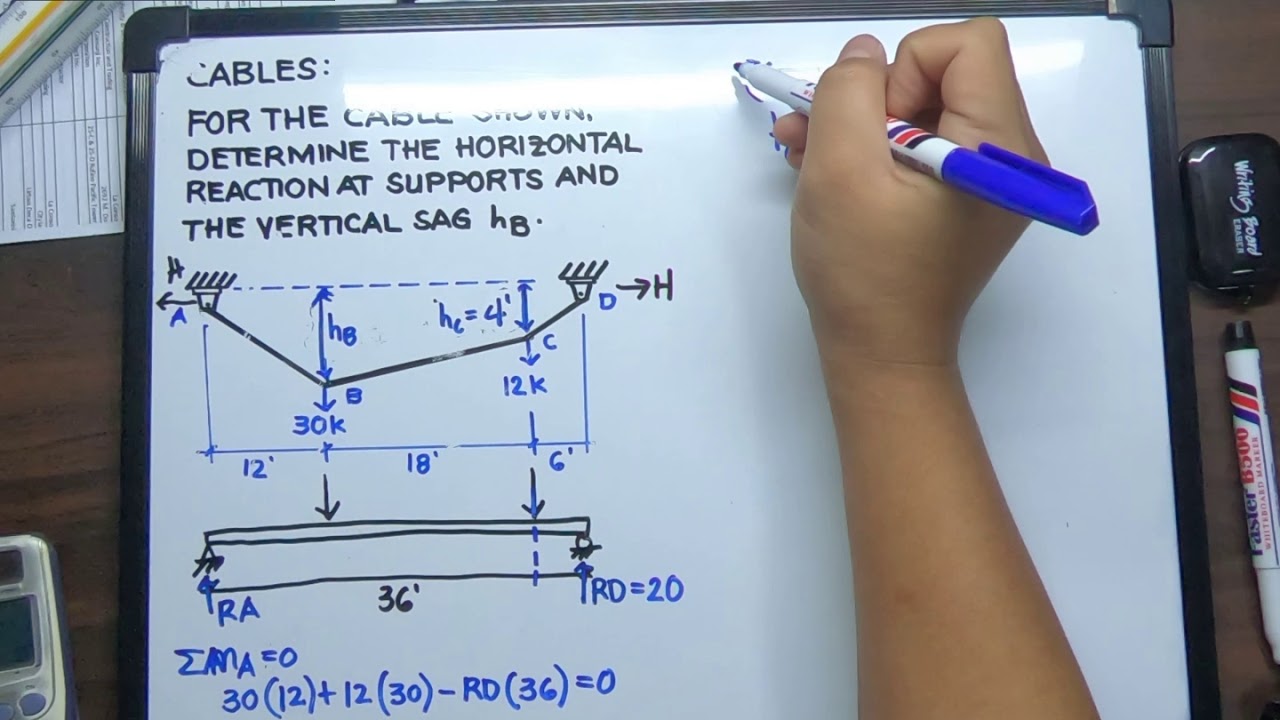 CABLES:
FOR THE CABLE SHOWN,
DETERMINE THE HORIZONTAL
REACTION AT SUPPORTS AND
THE VERTICAL SAG hB.
H
A
hB
hc = 4'
D
H
C
B
30k
12k
12'
18'
6'
RA
36'
RD=20
ΣMA=0
30(12)+12(30)-RD(36)=0
Writing Board
ERASER
Faster B500
WHITEBOARD MARKER